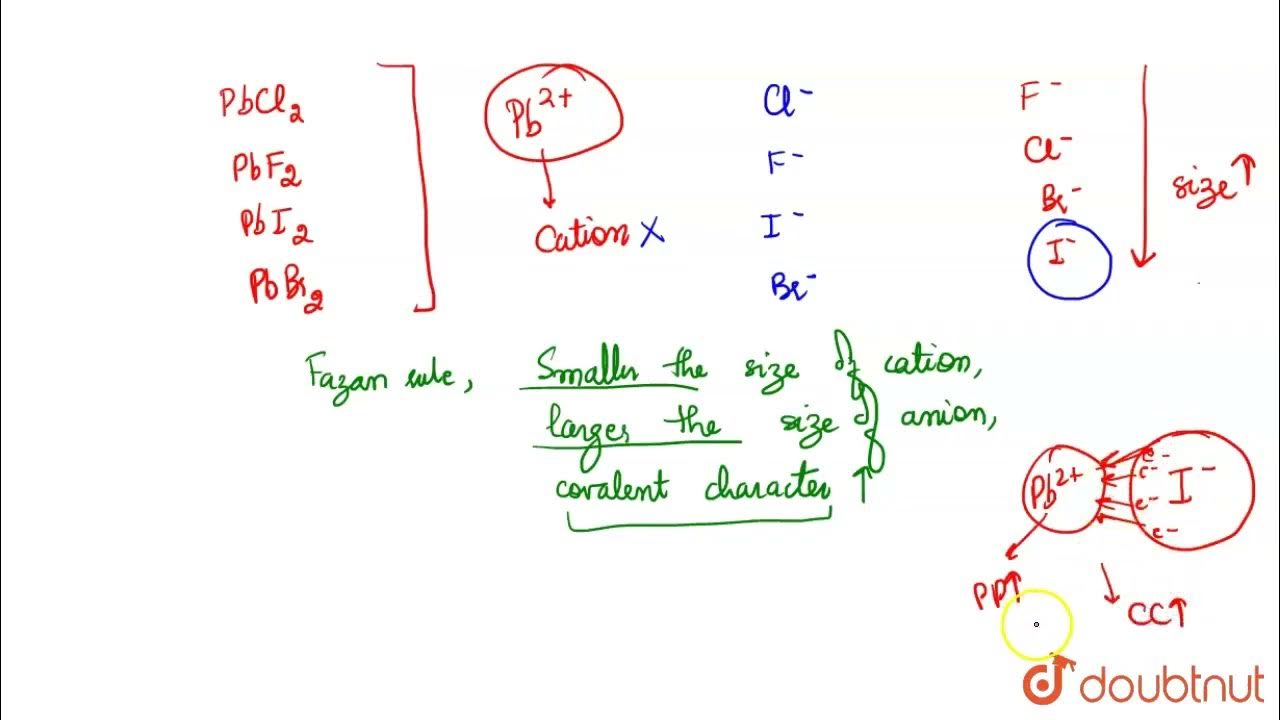 PbCl2
PbF2
PbI2
PbBr2
Pb2+
Cation X
Cl-
F-
I-
Br-
F-
Cl-
Br-
I-
size ↑
Fazan rule, Smaller the size of cation,
larger the size of anion,
covalent character ↑
Pb2+ e- e- e- e- I-
PP↑
CC↑
doubtnut